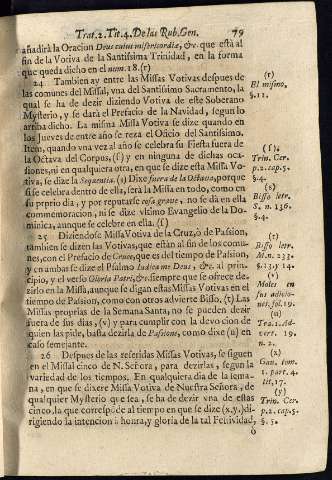 Trat.2.Tit.4. De las Rub. Gen. 79
añadirà la Oracion Deus cuius misericordiæ, &c. que està al
fin de la Votiva de la Santissima Trinidad, en la forma
que queda dicho en el num. 18. (r)
24 Tambien ay entre las Missas Votivas despues de
las comunes del Missal, vna del Santissimo Sacramento, la
qual se ha de dezir diziendo Votiva de este Soberano
Mysterio, y se darà el Prefacio de la Navidad, segun lo
arriba dicho. La misma Missa Votiva se dize quando en
los Jueves de entre año se reza el Oficio del Santissimo.
Item, quando vna vez al año se celebra su Fiesta fuera de
la Octava del Corpus, (s) y en ninguna de dichas oca-
siones, ni en qualquiera otra, en que se dize esta Missa Vo-
tiva, se dize la Sequentia. (1) Dixe fuera de la Octava, porque
si se celebra dentro de ella, serà la Missa en todo, como en
su prprio dia, y por reputarse cosa grave, no se dà en ella
commemoracion, ni se dize vltimo Evangelio de la Do-
minica, aunque se celebre en ella. (s)
25 Diziendose Missa Votiva de la Cruz, ò de Passion,
tambien se dizen las Votivas, que estàn al fin de los comu-
nes, con el Prefacio de Cruce, que es del tiempo de Passion,
y en ambas se dize el Psalmo Iudica me Deus, &c. al prin-
cipio, y el verso Gloria Patri, &c. siempre que le ofrece de-
zirlo en la Missa, aunque se digan estas Missas Votivas en el
tiempo de Passion, como con otros advierte Bisso, (t) Las
Missas proprias de la Semana Santa, no se pueden dezir
fuera de sus dias, (v) y para cumplir con la devocion de
quien las pide, basta dezirla de Passione, como dixe (u) en
caso semejante.
26 Despues de las referidas Missas Votivas, se siguen
en el Missal cinco de N. Señora, para dezirlas, segun la
variedad de los tiempos. En qualquiera dia de la sema-
na, en que se dixere Missa Votiva de Nuestra Señora, de
qualquier Mysterio que sea, se ha de dezir vna de estas
cinco, la que correspõde al tiempo en que se dize (x, y.) di-
rigiendo la intencion à honra, y gloria de tal Festividad,
ò
(r)
El mismo,
§.11.
(s)
Trin. Cer.
p.2. cap.5.
§.4.
Bisso letr.
S. n. 136.
§.4.
(t)
Bisso letr.
M.n. 233.
§.13. y 14.
(v)
Moles en
sus adicio-
nes, fol. 19.
(u)
Tra.1.Ad-
cert. 19.
n.2.
(x)
Gau. tom.
1. part.4.
tit,17.
(y)
Trin. Cer.
p.2. cap.5.
§.5.